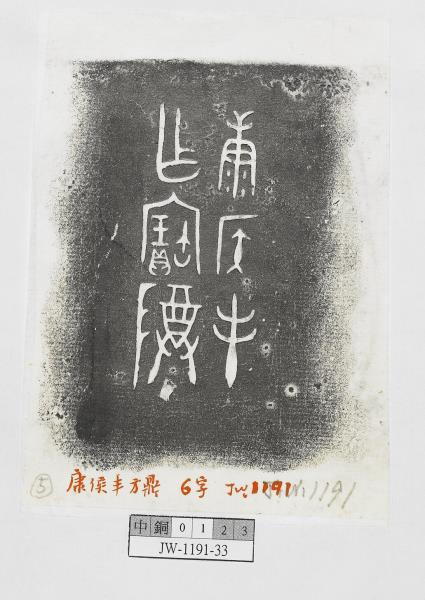 康侯丰
乍寶尊
⑤ 康侯丰方鼎 6字 JW1191 JW1191
中銅 0 1 2 3
JW-1191-33